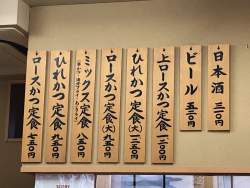 日本酒 三一〇円
ビール 五二〇円
上ロースかつ定食 一二〇〇円
ひれかつ定食(大) 一三五〇円
ロースかつ定食(大) 九五〇円
ミックス定食
八五〇円
ひれかつ定食 九五〇円
ロースかつ定食 七五〇円